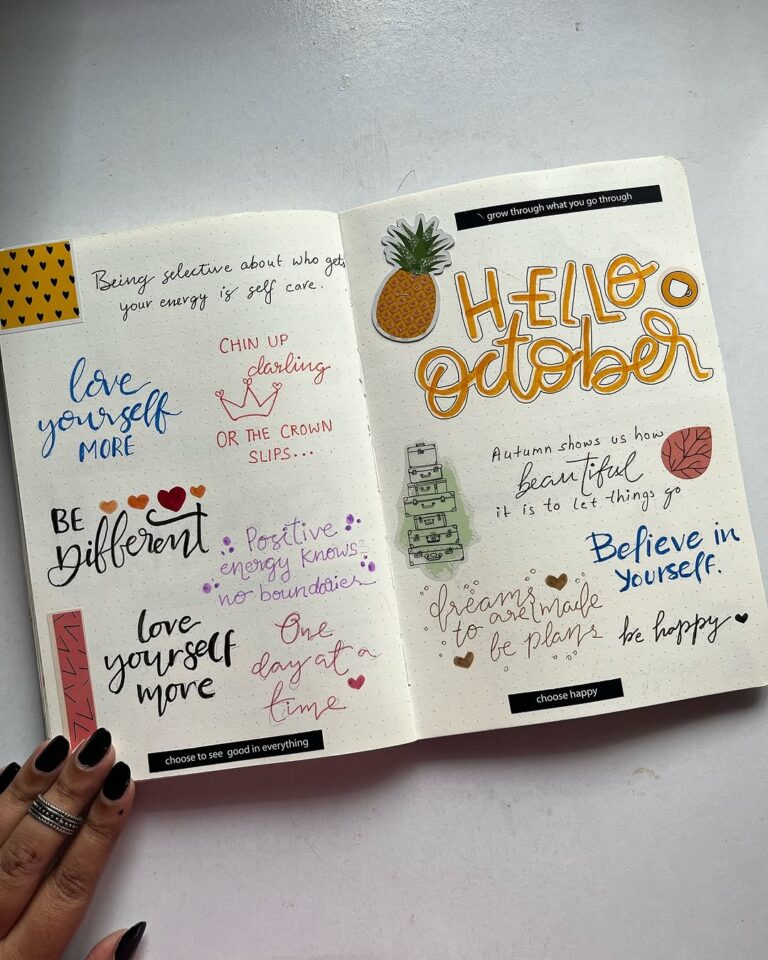 Being selective about who gets
your energy is self care.
love
yourself
MORE
CHIN UP
darling
OR THE CROWN
SLIPS...
BE
Different
Positive
energy knows
no boundaries
love
yourself
more
One
day at a
time
choose to see good in everything
grow through what you go through
HELLO
October
Autumn shows us how
beautiful
it is to let things go
Believe in
yourself.
dreams
to are made
be plans
be happy
choose happy